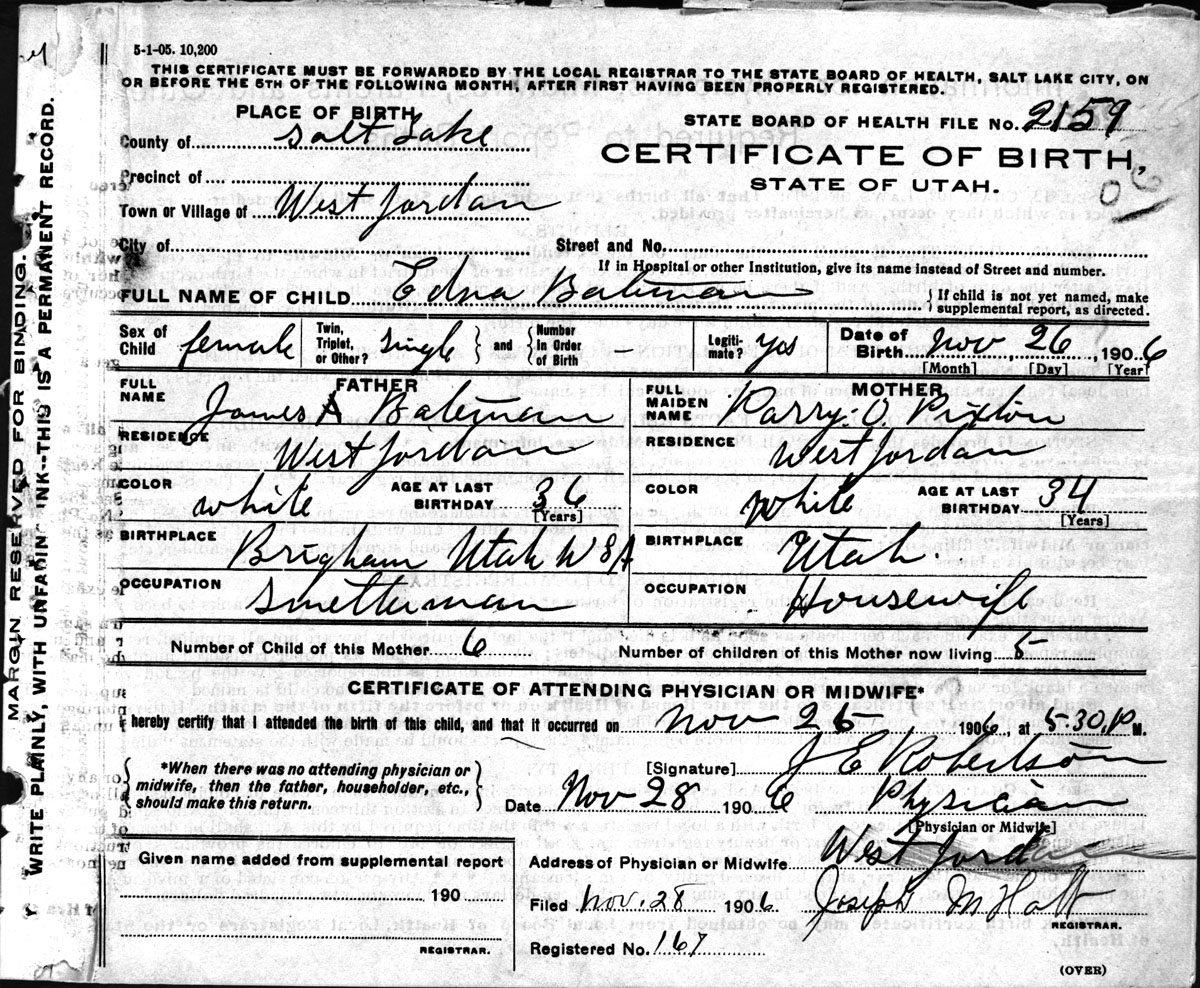 5-1-05. 10,200
THIS CERTIFICATE MUST BE FORWARDED BY THE LOCAL REGISTRAR TO THE STATE BOARD OF HEALTH, SALT LAKE CITY, ON
OR BEFORE THE 5TH OF THE FOLLOWING MONTH, AFTER FIRST HAVING BEEN PROPERLY REGISTERED.
PLACE OF BIRTH
STATE BOARD OF HEALTH FILE No. 2159
County of Salt Lake
CERTIFICATE OF BIRTH,
STATE OF UTAH.
Precinct of
Town or Village of West Jordan
City of Street and No.
If in Hospital or other Institution, give its name instead of Street and number.
FULL NAME OF CHILD Edna Bateman { If child is not yet named, make
supplemental report, as directed.
Sex of Child female Twin, Triplet, or Other? Single } and { Number in Order of Birth Legiti-mate? yes Date of Birth Nov, 26, 1906
[Month] [Day] [Year]
FATHER
FULL NAME James A Bateman
MOTHER
FULL MAIDEN NAME Karry. O. Pixton
RESIDENCE West Jordan
RESIDENCE West Jordan
COLOR white AGE AT LAST BIRTHDAY 36 [Years]
COLOR White AGE AT LAST BIRTHDAY 34 [Years]
BIRTHPLACE Brigham Utah
BIRTHPLACE Utah.
OCCUPATION Smelterman
OCCUPATION Housewife
Number of Child of this Mother 6 Number of children of this Mother now living 5
CERTIFICATE OF ATTENDING PHYSICIAN OR MIDWIFE*
I hereby certify that I attended the birth of this child, and that it occurred on Nov 26 1906, at 5-30, P M.
*When there was no attending physician or
midwife, then the father, householder, etc.,
should make this return.
[Signature] J E Robertson
Date Nov 28 1906 Physician
[Physician or Midwife]
Given name added from supplemental report
190
REGISTRAR.
Address of Physician or Midwife West Jordan
Filed Nov. 28 1906 Joseph M Holt
REGISTRAR.
Registered No. 167
(OVER)
MARGIN RESERVED FOR BINDING.
WRITE PLAINLY, WITH UNFADING INK--THIS IS A PERMANENT RECORD.